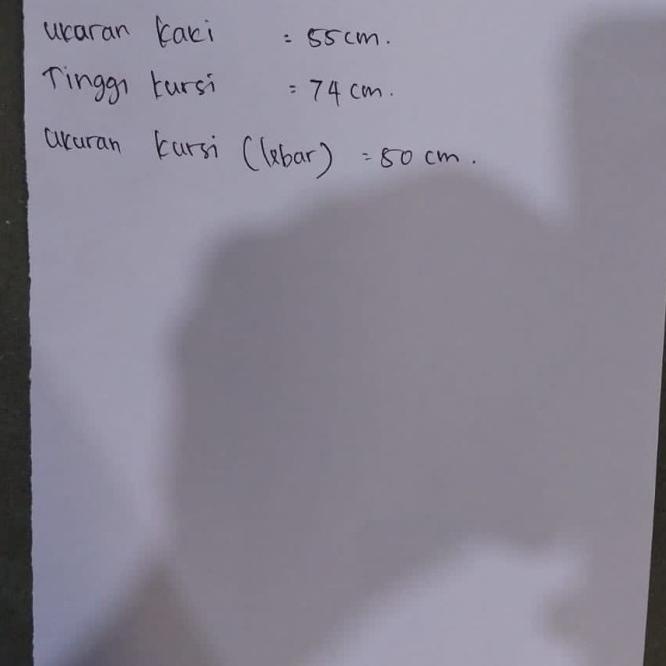 ukaran kaki = 55 cm.
Tinggi kursi = 74 cm.
Ukuran kursi (lebar) = 50 cm.